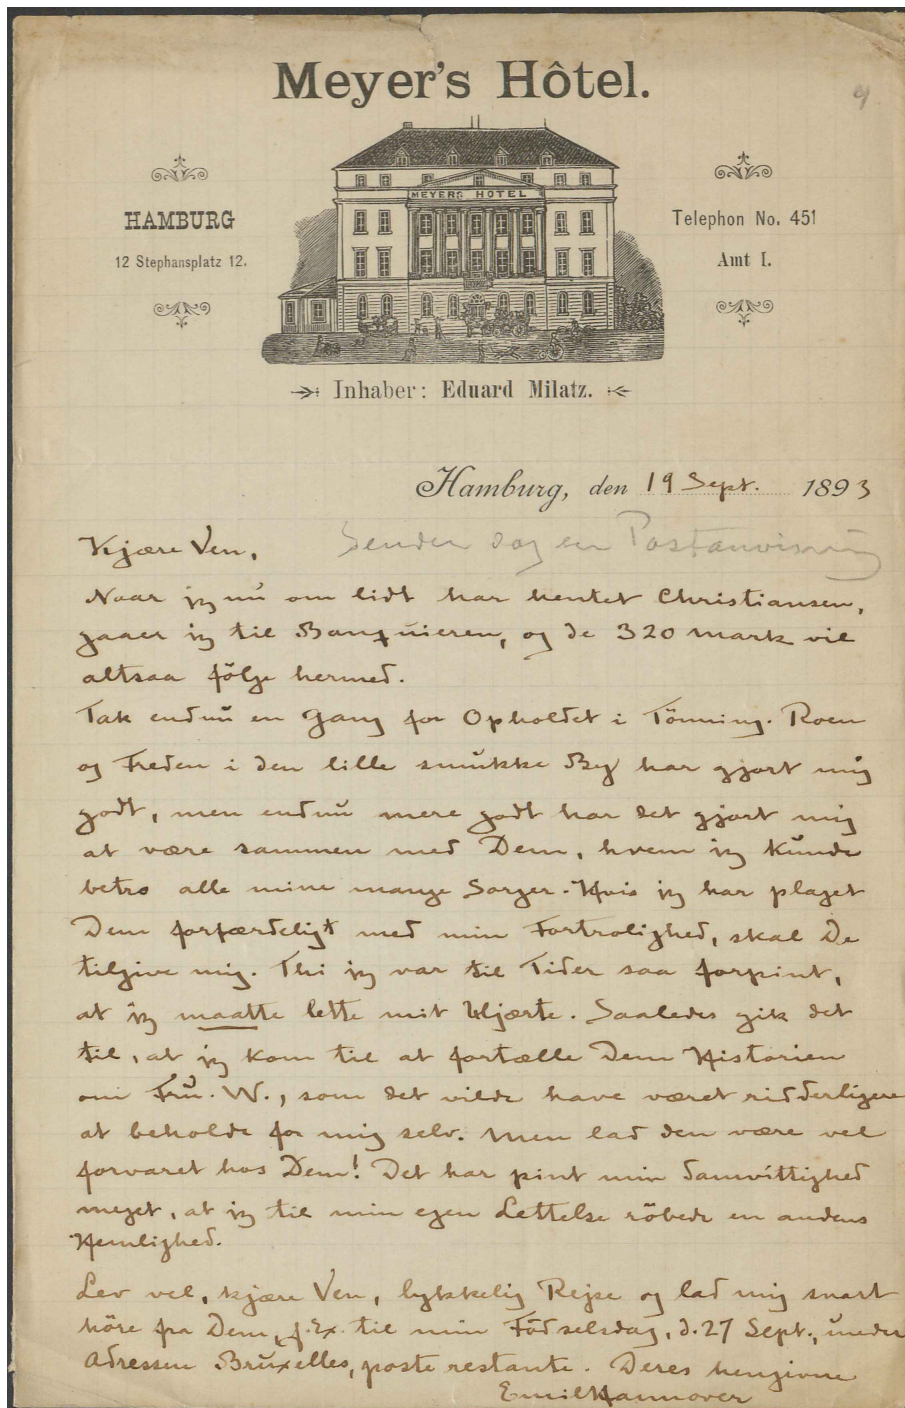 Meyer's Hôtel.
9
MEYERS HOTEL
HAMBURG
12 Stephansplatz 12.
Telephon No. 451
Amt I.
Inhaber: Eduard Milatz.
Hamburg, den 19 Sept. 1893
Kjære Ven,
Sender dog en Postanvisning
Naar jeg nu om lidt har hentet Christiansen,
gaaer jeg til Banquieren, og de 320 Mark vil
altsaa følge hermed.
Tak endnu en Gang for Opholdet i Tönning. Roen
og Freden i den lille smukke By har gjort mig
godt, men endnu mere godt har det gjort mig
at være sammen med Dem, hvem jeg kunde
betro alle mine mange Sorger. Hvis jeg har plaget
Dem forfærdeligt med min Fortrolighed, skal De
tilgive mig. Thi jeg var til Tider saa forpint,
at jeg maatte lette mit Hjærte. Saaledes gik det
til, at jeg kom til at fortælle Dem Historien
om Fru. W., som det vilde have været ridderligere
at beholde for mig selv. Men lad den være vel
forvaret hos Dem! Det har pint min Samvittighed
meget, at jeg til min egen Lettelse röbede en andens
Hemlighed.
Lev vel, kjære Ven, lykkelig Rejse og lad mig snart
höre fra Dem, f. Ex. til min Födselsdag, d. 27 Sept., under
Adressen Bruxelles, poste restante. Deres hengivne
Emil Hannover